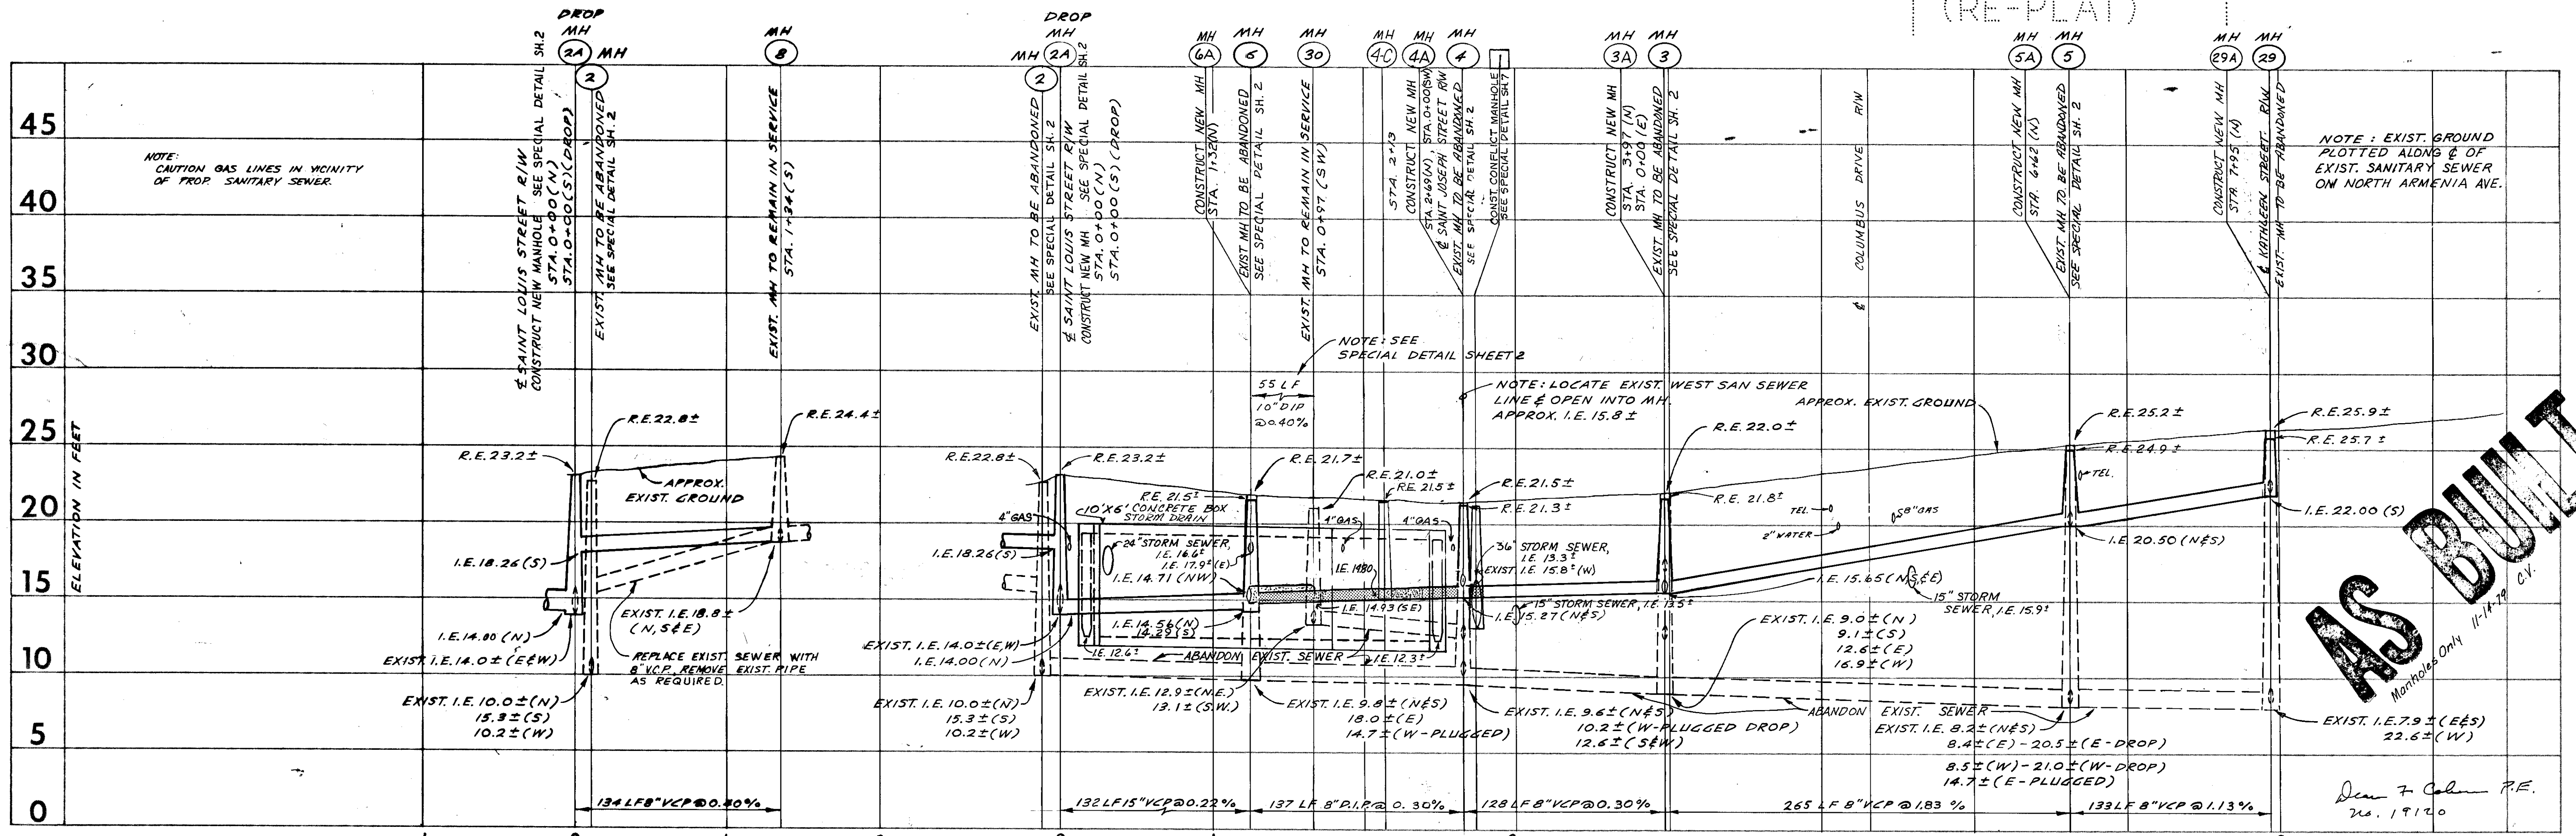 (RE-PLAT)
DROP
MH
2A
MH
2
MH
8
DROP
MH
MH 2A
2
MH
6A
MH
6
MH
30
MH
4-C
MH
4A
MH
4
MH
3A
MH
3
MH
5A
MH
5
MH
29A
MH
29
45
40
35
30
25
20
15
10
5
0
ELEVATION IN FEET
NOTE:
CAUTION GAS LINES IN VICINITY
OF PROP. SANITARY SEWER.
₵ SAINT LOUIS STREET R/W
CONSTRUCT NEW MANHOLE SEE SPECIAL DETAIL SH.2
STA. 0+00(N)
STA. 0+00(S)(DROP)
EXIST. MH TO BE ABANDONED
SEE SPECIAL DETAIL SH. 2
EXIST. MH TO REMAIN IN SERVICE
STA. 1+34(S)
EXIST. MH TO BE ABANDONED
SEE SPECIAL DETAIL SH. 2
₵ SAINT LOUIS STREET R/W
CONSTRUCT NEW MH SEE SPECIAL DETAIL SH.2
STA. 0+00(N)
STA. 0+00(S)(DROP)
CONSTRUCT NEW MH
STA. 1+32(N)
EXIST MH TO BE ABANDONED
SEE SPECIAL DETAIL SH. 2
EXIST. MH TO REMAIN IN SERVICE
STA. 0+97 (SW)
STA. 2+13
CONSTRUCT NEW MH
STA. 2+69(N), STA. 0+00(SW)
₵ SAINT JOSEPH STREET R/W
EXIST. MH TO BE ABANDONED
SEE SPECIAL DETAIL SH. 2
CONST. CONFLICT MANHOLE
SEE SPECIAL DETAIL SH.7
CONSTRUCT NEW MH
STA. 3+97 (N)
STA. 0+00 (E)
EXIST. MH TO BE ABANDONED
SEE SPECIAL DETAIL SH. 2
₵ COLUMBUS DRIVE R/W
CONSTRUCT NEW MH
STA. 6+62 (N)
EXIST. MH TO BE ABANDONED
SEE SPECIAL DETAIL SH. 2
CONSTRUCT NEW MH
STA. 7+95 (N)
₵ KATHLEEN STREET R/W
EXIST. MH TO BE ABANDONED
NOTE: EXIST. GROUND
PLOTTED ALONG ₵ OF
EXIST. SANITARY SEWER
ON NORTH ARMENIA AVE.
NOTE: SEE
SPECIAL DETAIL SHEET 2
55 LF
10" DIP
@0.40%
NOTE: LOCATE EXIST. WEST SAN SEWER
LINE & OPEN INTO MH.
APPROX. I.E. 15.8 ±
APPROX. EXIST. GROUND
R.E. 23.2±
R.E. 22.8±
R.E. 24.4±
APPROX.
EXIST. GROUND
I.E. 18.26(S)
I.E. 14.00(N)
EXIST. I.E. 14.0± (E&W)
EXIST. I.E. 10.0±(N)
15.3±(S)
10.2±(W)
EXIST. I.E. 18.8±
(N, S&E)
REPLACE EXIST. SEWER WITH
8" V.C.P., REMOVE EXIST. PIPE
AS REQUIRED.
R.E. 22.8±
R.E. 23.2±
4" GAS
10'X6' CONCRETE BOX
STORM DRAIN
I.E. 18.26(S)
EXIST. I.E. 14.0±(E,W)
I.E. 14.00(N)
EXIST. I.E. 10.0±(N)
15.3±(S)
10.2±(W)
24" STORM SEWER,
I.E. 16.6±
I.E. 17.9±(E)
I.E. 14.71 (NW)
I.E. 14.56(N)
14.29(S)
I.E. 12.6±
ABANDON EXIST. SEWER
EXIST. I.E. 12.9±(N.E.)
13.1±(S.W.)
R.E. 21.5±
R.E. 21.7±
R.E. 21.0±
R.E. 21.5±
4" GAS
4" GAS
I.E. 14.93(SE)
I.E. 12.3±
EXIST. I.E. 9.8±(N&S)
18.0±(E)
14.7±(W-PLUGGED)
R.E. 21.5±
R.E. 21.3±
36" STORM SEWER,
I.E. 13.3±
EXIST. I.E. 15.8±(W)
15" STORM SEWER, I.E. 13.5±
I.E. 15.27(N&S)
EXIST. I.E. 9.6±(N&S)
10.2±(W-PLUGGED DROP)
12.6±(S&W)
R.E. 22.0±
R.E. 21.8±
I.E. 15.65(N,S,&E)
EXIST. I.E. 9.0±(N)
9.1±(S)
12.6±(E)
16.9±(W)
TEL.
2" WATER
8" GAS
15" STORM
SEWER, I.E. 15.9±
ABANDON EXIST. SEWER
R.E. 25.2±
R.E. 24.9±
TEL.
I.E. 20.50 (N&S)
EXIST. I.E. 8.2±(N&S)
8.4±(E)-20.5±(E-DROP)
8.5±(W)-21.0±(W-DROP)
14.7±(E-PLUGGED)
R.E. 25.9±
R.E. 25.7±
I.E. 22.00 (S)
EXIST. I.E. 7.9±(E&S)
22.6±(W)
134 LF 8" VCP @ 0.40%
132 LF 15" VCP @ 0.22%
137 LF 8" D.I.P. @ 0.30%
128 LF 8" VCP @ 0.30%
265 LF 8" VCP @ 1.83 %
133 LF 8" VCP @ 1.13%
AS BUILT
Manholes Only 11-14-79 C.V.
P.E.
No. 19120